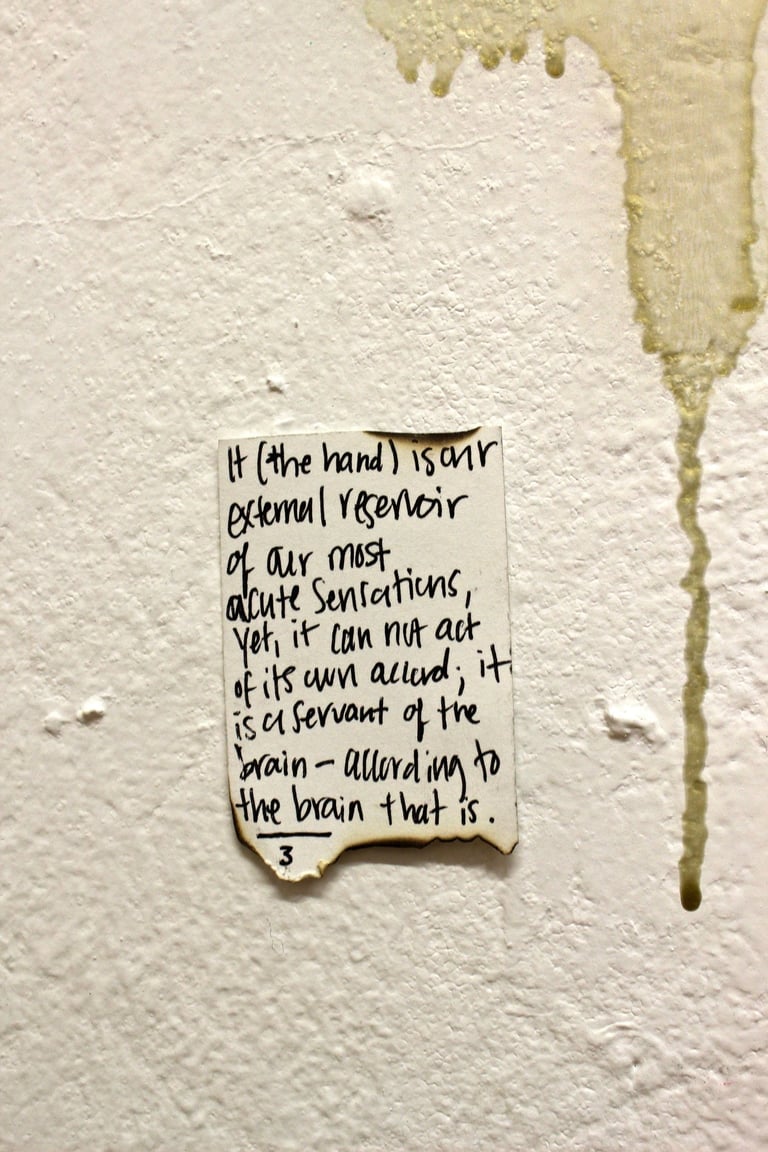 It (the hand) is our
external reservoir
of our most
acute sensations,
yet, it can not act
of its own accord; it
is a servant of the
brain - according to
the brain that is.
3